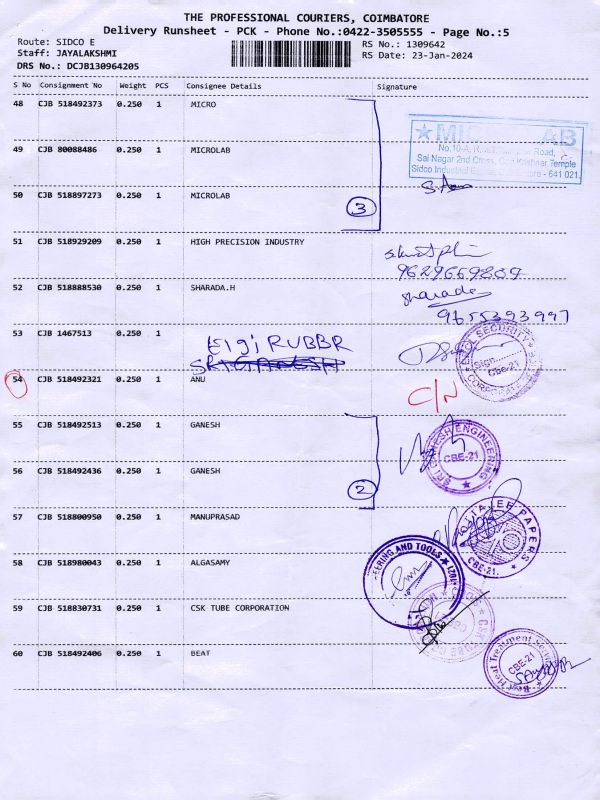 THE PROFESSIONAL COURIERS, COIMBATORE
Delivery Runsheet - PCK - Phone No.:0422-3505555 - Page No.:5
Route: SIDCO E
RS No.: 1309642
Staff: JAYALAKSHMI
RS Date: 23-Jan-2024
DRS No.: DCJB130964205
S No Consignment No Weight PCS Consignee Details Signature
48 CJB 518492373 0.250 1 MICRO
49 CJB 80088486 0.250 1 MICROLAB
No.10-A, Road,
Sai Nagar 2nd Cross, Temple
Sidco Industrial - 641 021.
50 CJB 518897273 0.250 1 MICROLAB
3
51 CJB 518929209 0.250 1 HIGH PRECISION INDUSTRY
9629669809
52 CJB 518888530 0.250 1 SHARADA.H
Sharada
9655393997
53 CJB 1467513 0.250 1
Elgi RUBBR
SECURITY
Sign
CBE-21
54 CJB 518492321 0.250 1 ANU
C/N
55 CJB 518492513 0.250 1 GANESH
SRI GANESH ENGINEERING
CBE-21
56 CJB 518492436 0.250 1 GANESH
2
57 CJB 518800950 0.250 1 MANUPRASAD
PAPERS
CBE-21.
58 CJB 518980043 0.250 1 ALGASAMY
ERING AND TOOLS
59 CJB 518830731 0.250 1 CSK TUBE CORPORATION
60 CJB 518492406 0.250 1 BEAT
Best Heat Treatment
CBE-21